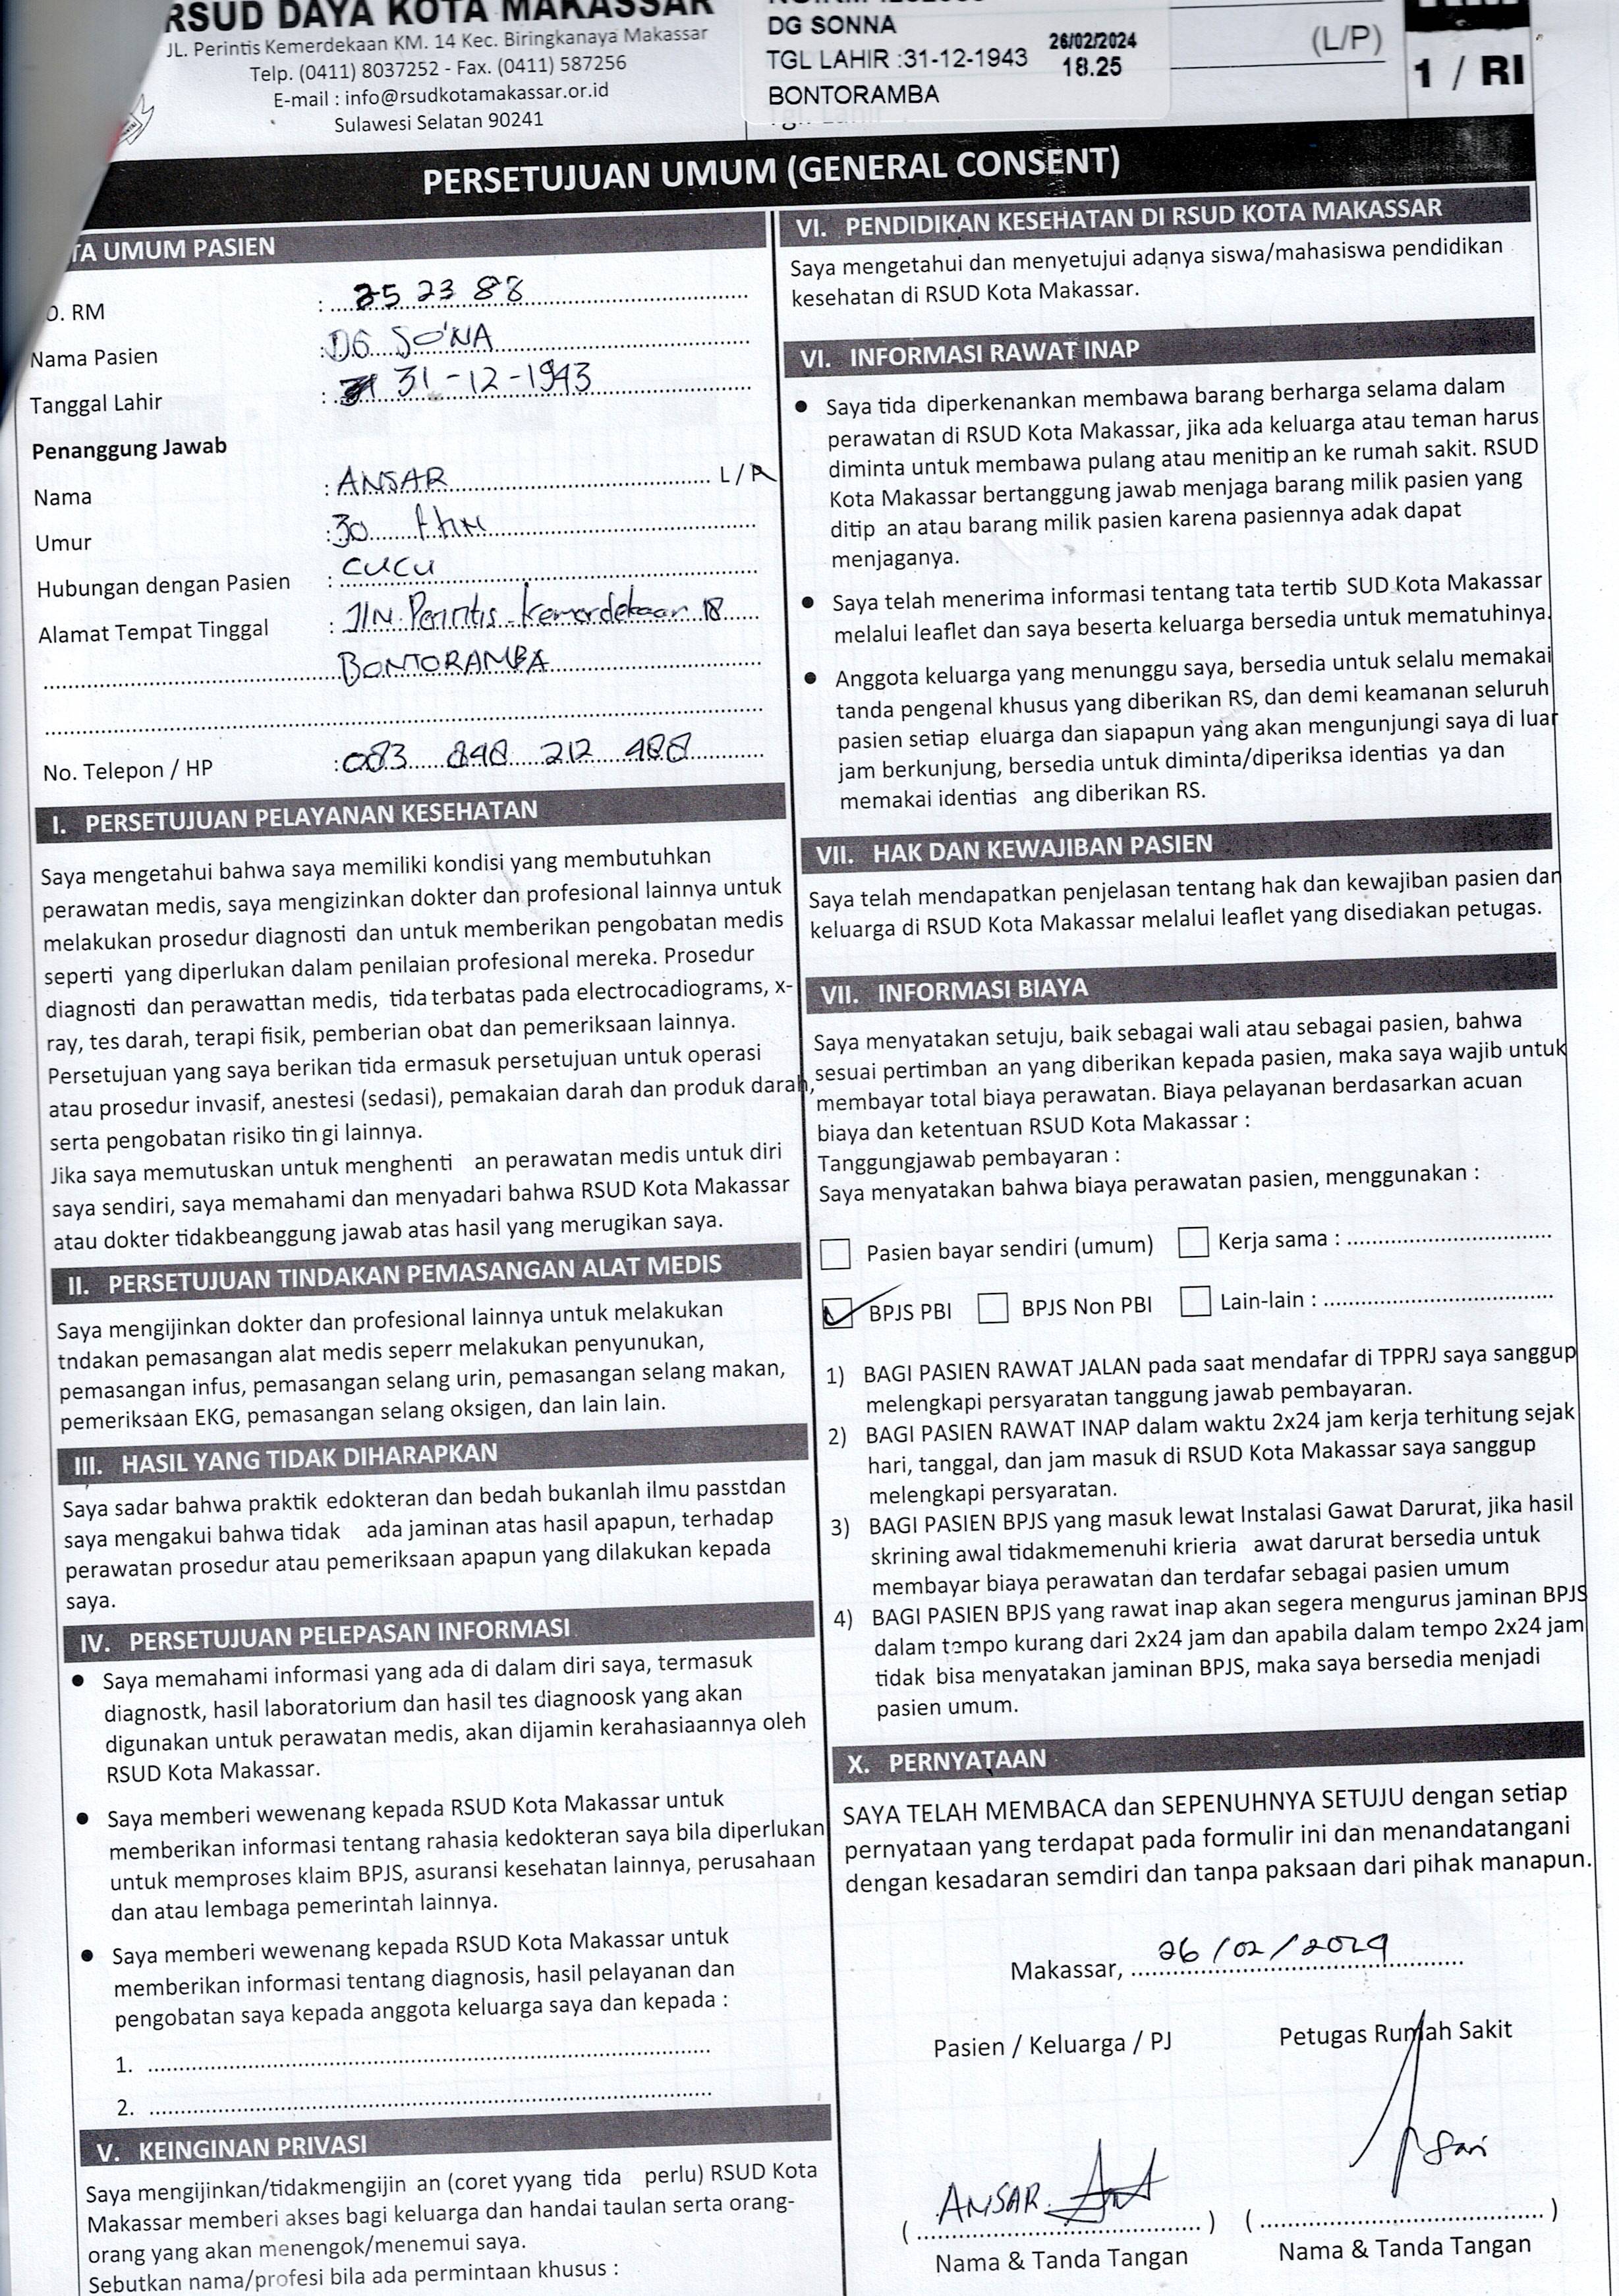 RSUD DAYA KOTA MAKASSAR
JL. Perintis Kemerdekaan KM. 14 Kec. Biringkanaya Makassar
Telp. (0411) 8037252 - Fax. (0411) 587256
E-mail : info@rsudkotamakassar.or.id
Sulawesi Selatan 90241
DG SONNA
TGL LAHIR :31-12-1943
26/02/2024
18.25
BONTORAMBA
(L/P)
1 / RI
PERSETUJUAN UMUM (GENERAL CONSENT)
TA UMUM PASIEN
O. RM : 252388
Nama Pasien : DG SO'NA
Tanggal Lahir : 31-12-1943
Penanggung Jawab
Nama : ANSAR L/P
Umur : 30 thn
Hubungan dengan Pasien : CUCU
Alamat Tempat Tinggal : Jln. Perintis Kemerdekaan 18
BONTORAMBA
No. Telepon / HP : 083 848 212 488
I. PERSETUJUAN PELAYANAN KESEHATAN
Saya mengetahui bahwa saya memiliki kondisi yang membutuhkan
perawatan medis, saya mengizinkan dokter dan profesional lainnya untuk
melakukan prosedur diagnosti dan untuk memberikan pengobatan medis
seperti yang diperlukan dalam penilaian profesional mereka. Prosedur
diagnosti dan perawattan medis, tida terbatas pada electrocadiograms, x-
ray, tes darah, terapi fisik, pemberian obat dan pemeriksaan lainnya.
Persetujuan yang saya berikan tida ermasuk persetujuan untuk operasi
atau prosedur invasif, anestesi (sedasi), pemakaian darah dan produk darah,
serta pengobatan risiko tin gi lainnya.
Jika saya memutuskan untuk menghenti an perawatan medis untuk diri
saya sendiri, saya memahami dan menyadari bahwa RSUD Kota Makassar
atau dokter tidakbeanggung jawab atas hasil yang merugikan saya.
II. PERSETUJUAN TINDAKAN PEMASANGAN ALAT MEDIS
Saya mengijinkan dokter dan profesional lainnya untuk melakukan
tndakan pemasangan alat medis seperr melakukan penyunukan,
pemasangan infus, pemasangan selang urin, pemasangan selang makan,
pemeriksaan EKG, pemasangan selang oksigen, dan lain lain.
III. HASIL YANG TIDAK DIHARAPKAN
Saya sadar bahwa praktik edokteran dan bedah bukanlah ilmu passtdan
saya mengakui bahwa tidak ada jaminan atas hasil apapun, terhadap
perawatan prosedur atau pemeriksaan apapun yang dilakukan kepada
saya.
IV. PERSETUJUAN PELEPASAN INFORMASI
● Saya memahami informasi yang ada di dalam diri saya, termasuk
diagnostk, hasil laboratorium dan hasil tes diagnoosk yang akan
digunakan untuk perawatan medis, akan dijamin kerahasiaannya oleh
RSUD Kota Makassar.
● Saya memberi wewenang kepada RSUD Kota Makassar untuk
memberikan informasi tentang rahasia kedokteran saya bila diperlukan
untuk memproses klaim BPJS, asuransi kesehatan lainnya, perusahaan
dan atau lembaga pemerintah lainnya.
● Saya memberi wewenang kepada RSUD Kota Makassar untuk
memberikan informasi tentang diagnosis, hasil pelayanan dan
pengobatan saya kepada anggota keluarga saya dan kepada :
1.
2.
V. KEINGINAN PRIVASI
Saya mengijinkan/tidakmengijin an (coret yyang tida perlu) RSUD Kota
Makassar memberi akses bagi keluarga dan handai taulan serta orang-
orang yang akan menengok/menemui saya.
Sebutkan nama/profesi bila ada permintaan khusus :
VI. PENDIDIKAN KESEHATAN DI RSUD KOTA MAKASSAR
Saya mengetahui dan menyetujui adanya siswa/mahasiswa pendidikan
kesehatan di RSUD Kota Makassar.
VI. INFORMASI RAWAT INAP
● Saya tida diperkenankan membawa barang berharga selama dalam
perawatan di RSUD Kota Makassar, jika ada keluarga atau teman harus
diminta untuk membawa pulang atau menitip an ke rumah sakit. RSUD
Kota Makassar bertanggung jawab menjaga barang milik pasien yang
ditip an atau barang milik pasien karena pasiennya adak dapat
menjaganya.
● Saya telah menerima informasi tentang tata tertib SUD Kota Makassar
melalui leaflet dan saya beserta keluarga bersedia untuk mematuhinya.
● Anggota keluarga yang menunggu saya, bersedia untuk selalu memakai
tanda pengenal khusus yang diberikan RS, dan demi keamanan seluruh
pasien setiap eluarga dan siapapun yang akan mengunjungi saya di luar
jam berkunjung, bersedia untuk diminta/diperiksa identias ya dan
memakai identias ang diberikan RS.
VII. HAK DAN KEWAJIBAN PASIEN
Saya telah mendapatkan penjelasan tentang hak dan kewajiban pasien dan
keluarga di RSUD Kota Makassar melalui leaflet yang disediakan petugas.
VII. INFORMASI BIAYA
Saya menyatakan setuju, baik sebagai wali atau sebagai pasien, bahwa
sesuai pertimban an yang diberikan kepada pasien, maka saya wajib untuk
membayar total biaya perawatan. Biaya pelayanan berdasarkan acuan
biaya dan ketentuan RSUD Kota Makassar :
Tanggungjawab pembayaran :
Saya menyatakan bahwa biaya perawatan pasien, menggunakan :
Pasien bayar sendiri (umum) Kerja sama :
BPJS PBI BPJS Non PBI Lain-lain :
1) BAGI PASIEN RAWAT JALAN pada saat mendafar di TPPRJ saya sanggup
melengkapi persyaratan tanggung jawab pembayaran.
2) BAGI PASIEN RAWAT INAP dalam waktu 2x24 jam kerja terhitung sejak
hari, tanggal, dan jam masuk di RSUD Kota Makassar saya sanggup
melengkapi persyaratan.
3) BAGI PASIEN BPJS yang masuk lewat Instalasi Gawat Darurat, jika hasil
skrining awal tidakmemenuhi krieria awat darurat bersedia untuk
membayar biaya perawatan dan terdafar sebagai pasien umum
4) BAGI PASIEN BPJS yang rawat inap akan segera mengurus jaminan BPJS
dalam tempo kurang dari 2x24 jam dan apabila dalam tempo 2x24 jam
tidak bisa menyatakan jaminan BPJS, maka saya bersedia menjadi
pasien umum.
X. PERNYATAAN
SAYA TELAH MEMBACA dan SEPENUHNYA SETUJU dengan setiap
pernyataan yang terdapat pada formulir ini dan menandatangani
dengan kesadaran semdiri dan tanpa paksaan dari pihak manapun.
Makassar, 26/02/2029
Pasien / Keluarga / PJ Petugas Rumah Sakit
ANSAR Sari
Nama & Tanda Tangan Nama & Tanda Tangan